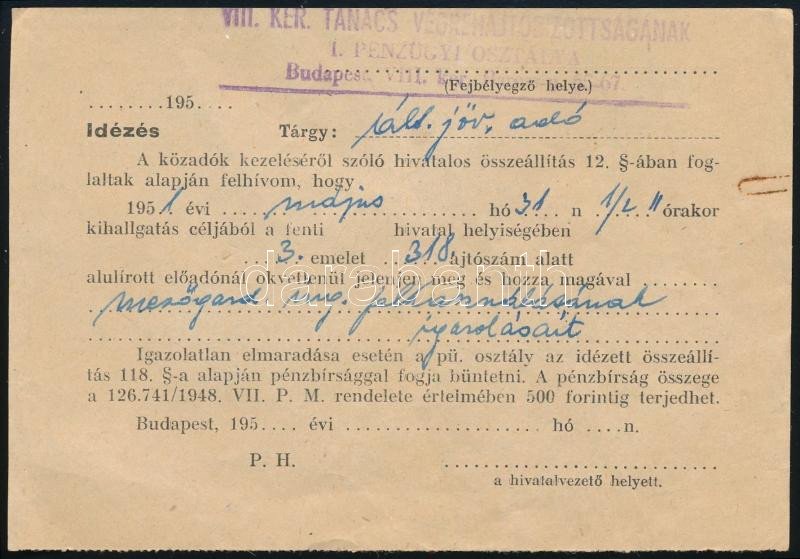 VIII. KER. TANÁCS VÉGREHAJTÓBIZOTTSÁGÁNAK
I. PÉNZÜGYI OSZTÁLYA
Budapest, VIII. 67.
(Fejbélyegző helye.)
........195....
Idézés Tárgy: ált. jöv. adó
A közadók kezeléséről szóló hivatalos összeállítás 12. §-ában fog-
laltak alapján felhívom, hogy
1951 évi május hó 31 n 1/2 11 órakor
kihallgatás céljából a fenti hivatal helyiségében
3. emelet 318. ajtószám alatt
alulírott előadónál okvetlenül jelenjen meg és hozza magával
mezőgazd. ing. felhasználásának
igazolásait
Igazolatlan elmaradása esetén a pü. osztály az idézett összeállí-
tás 118. §-a alapján pénzbírsággal fogja büntetni. A pénzbírság összege
a 126.741/1948. VII. P. M. rendelete érteimében 500 forintig terjedhet.
Budapest, 195.... évi hó ....n.
P. H.
a hivatalvezető helyett.
darabanth